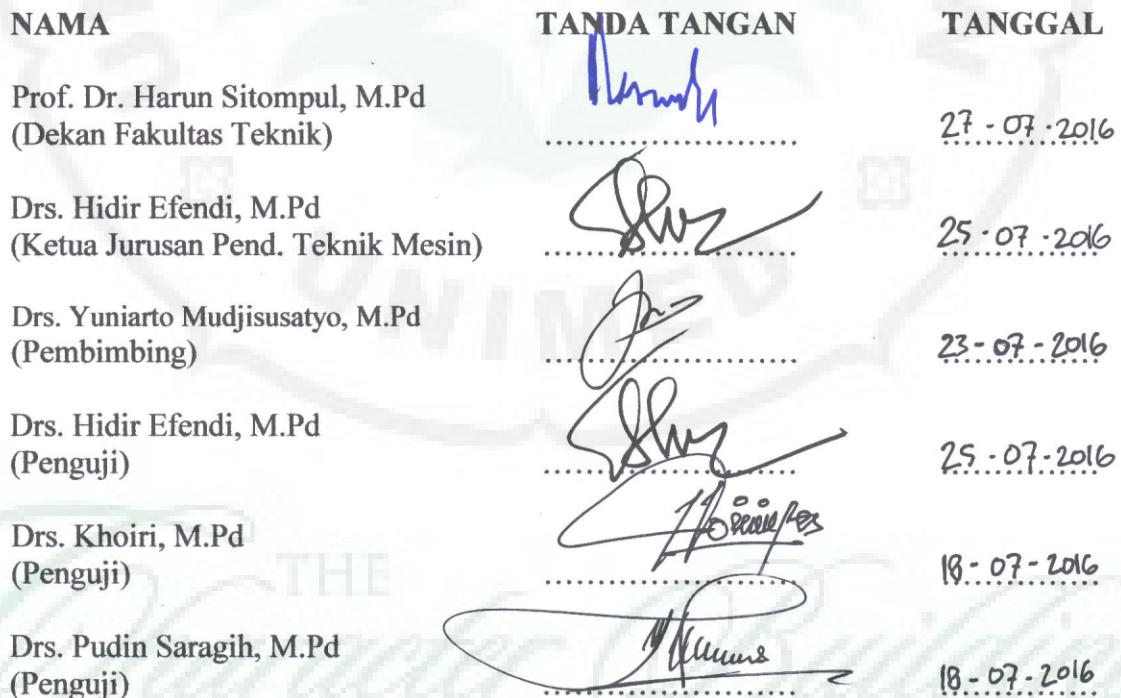 NAMA TANDA TANGAN TANGGAL
Prof. Dr. Harun Sitompul, M.Pd
(Dekan Fakultas Teknik) ........................ 27-07-2016
Drs. Hidir Efendi, M.Pd
(Ketua Jurusan Pend. Teknik Mesin) ........................ 25-07-2016
Drs. Yuniarto Mudjisusatyo, M.Pd
(Pembimbing) ........................ 23-07-2016
Drs. Hidir Efendi, M.Pd
(Penguji) ........................ 25-07-2016
Drs. Khoiri, M.Pd
(Penguji) ........................ 18-07-2016
Drs. Pudin Saragih, M.Pd
(Penguji) ........................ 18-07-2016
UNIMED
THE
Character Building